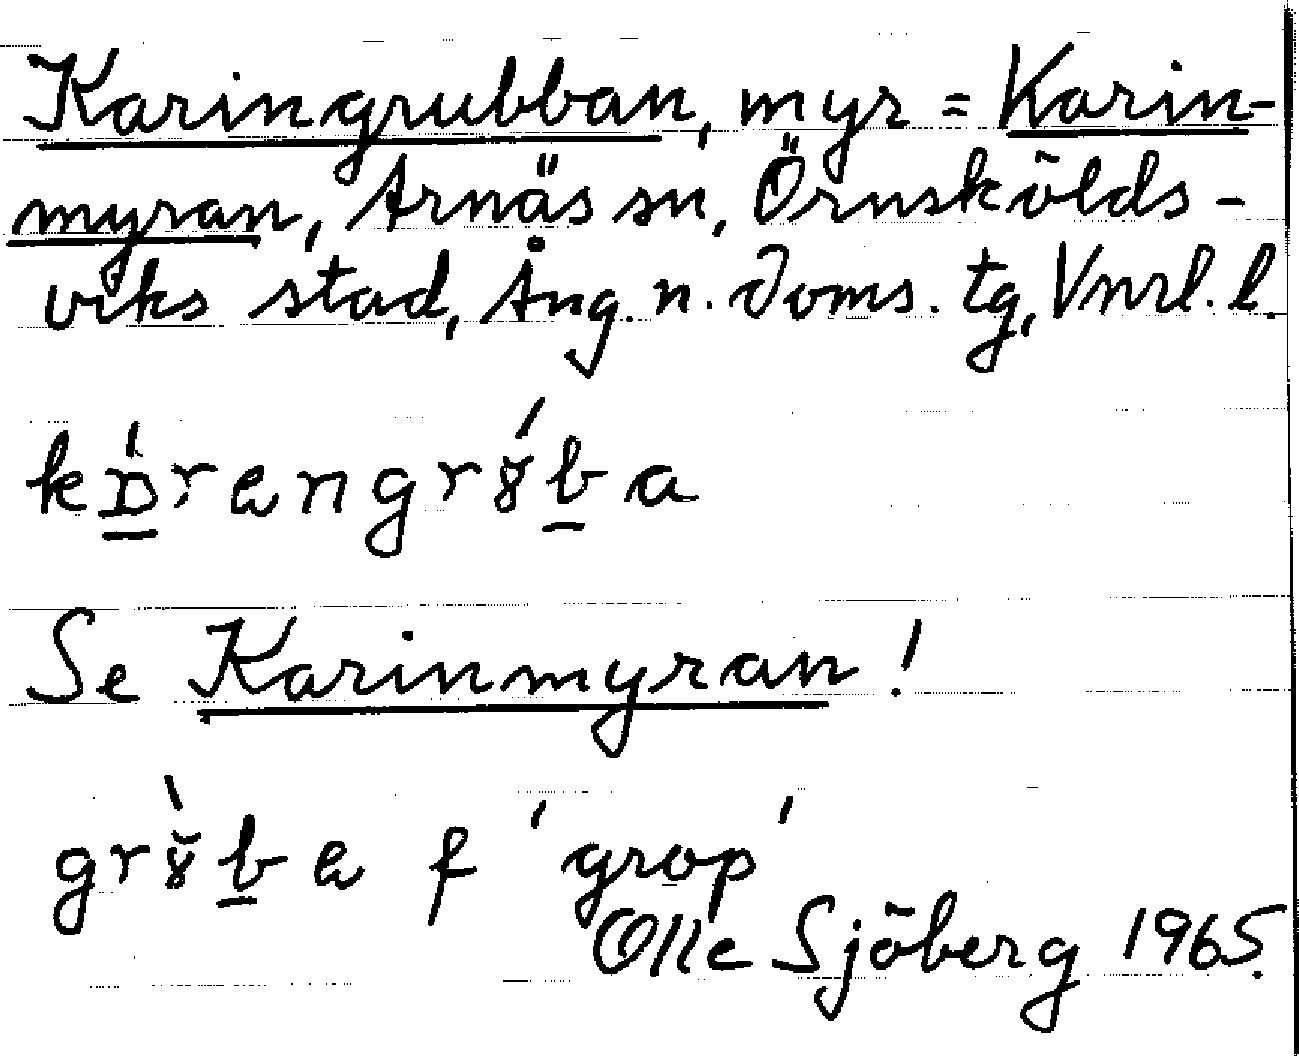 Karingrubban, myr = Karin-
myran, Arnäs sn, Örnskölds-
viks stad, Ång. n. Doms. tg, Vnrl. l.
Se Karinmyran!
f 'grop'
Olle Sjöberg 1965.